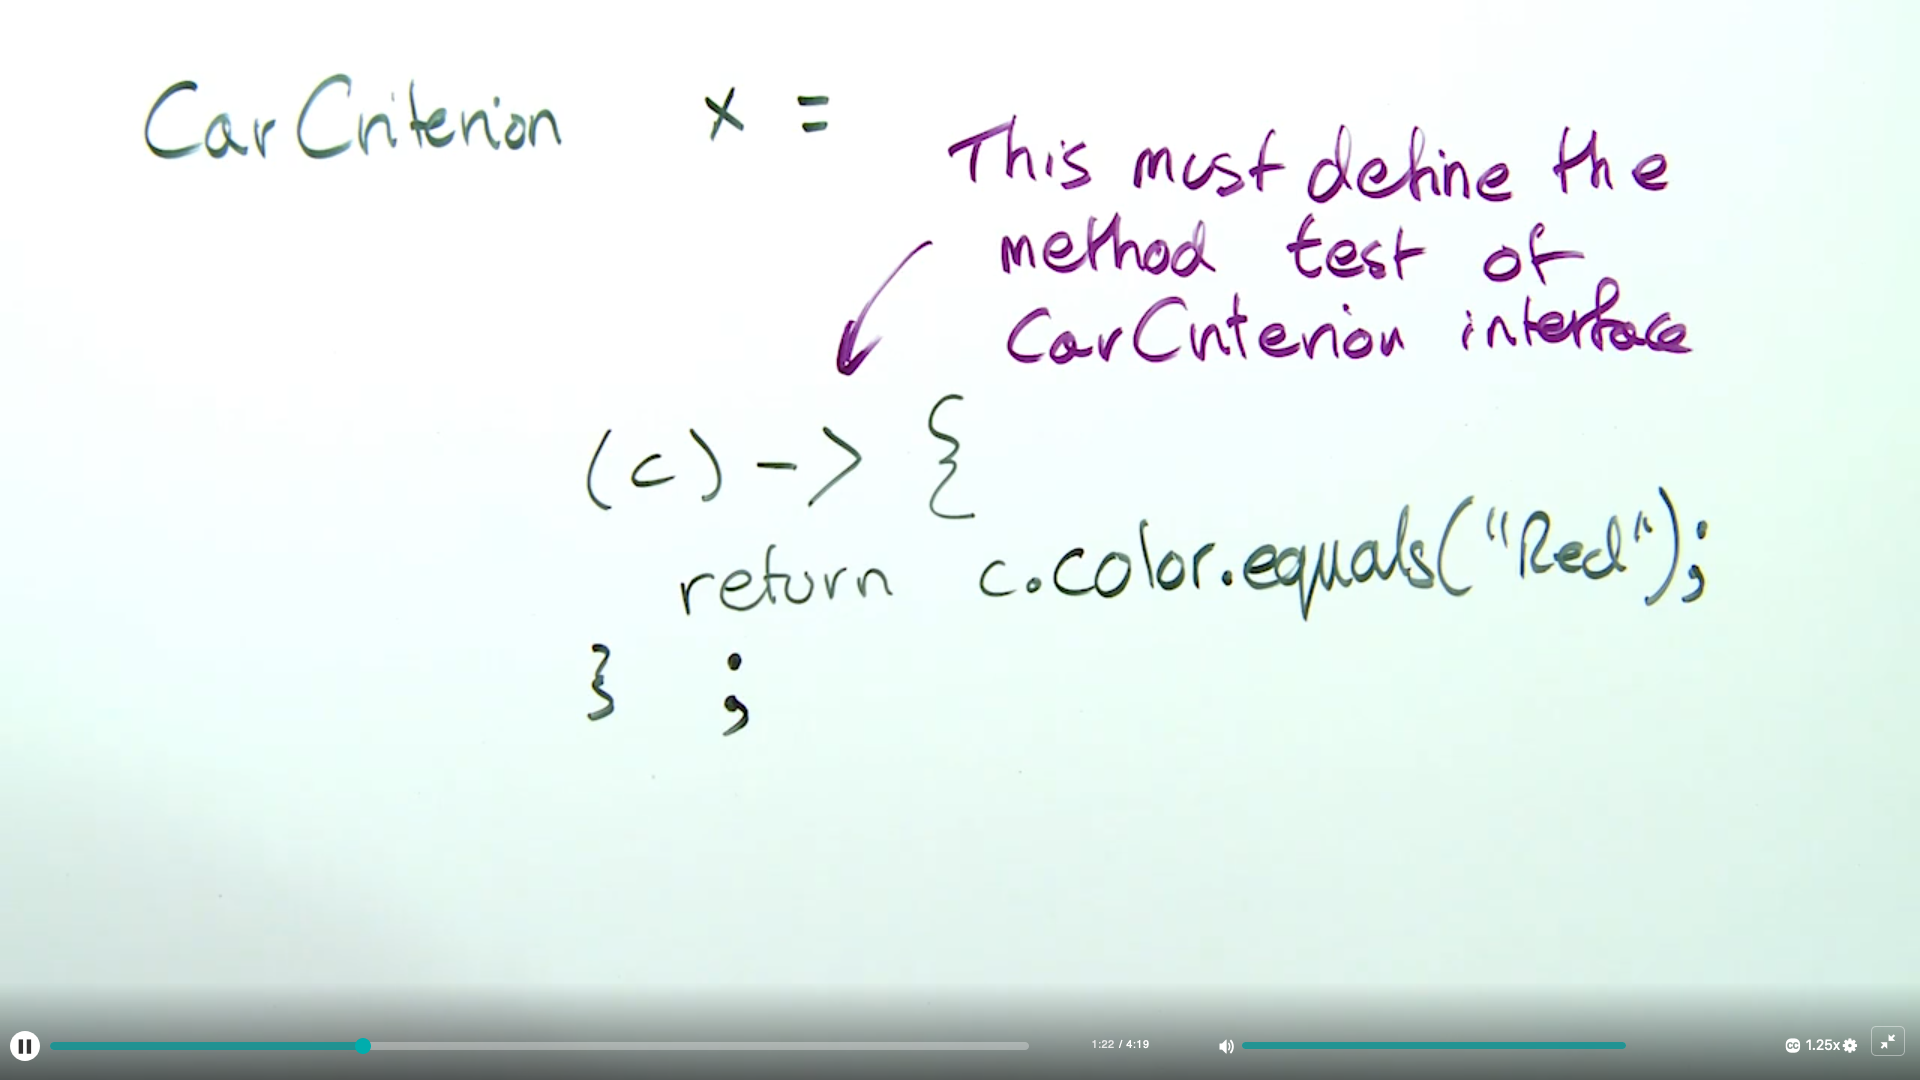 CarCriterion x =
This must define the
method test of
CarCriterion interface
(c) -> {
return c.color.equals("Red");
} ;
1:22 / 4:19
CC 1.25x